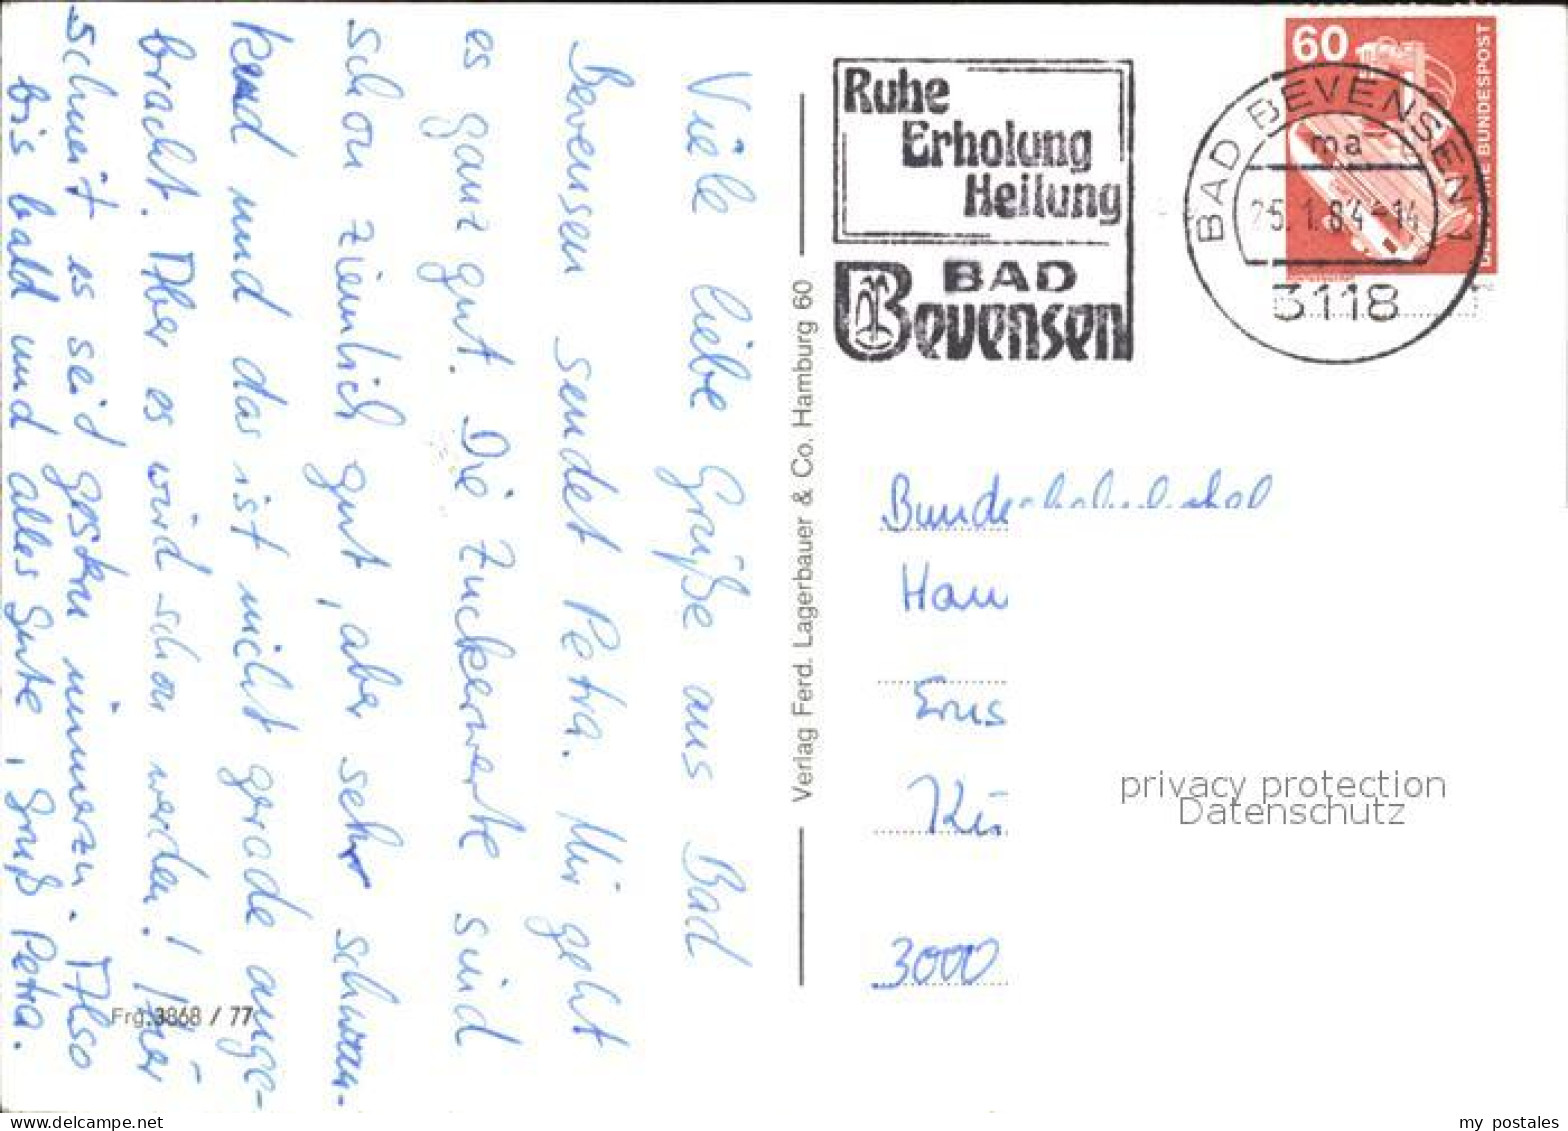 Viele liebe Grüße aus Bad
Bevensen sendet Petra. Mir geht
es ganz gut. Die Zuckerwerte sind
schon ziemlich gut, aber sehr schwan-
kend und das ist nicht gerade ange-
bracht. Aber es wird schon werden! Hier
schneit es seid gestern immerzu. Also
bis bald und alles Gute, Gruß Petra.
Frg. 3868 / 77
Verlag Ferd. Lagerbauer & Co. Hamburg 60
Ruhe
Erholung
Heilung
BAD
Bevensen
60
DEUTSCHE BUNDESPOST
BAD BEVENSEN 1
ma
25.1.84-14
3118
Han
Erns
3000
privacy protection
Datenschutz
my postales